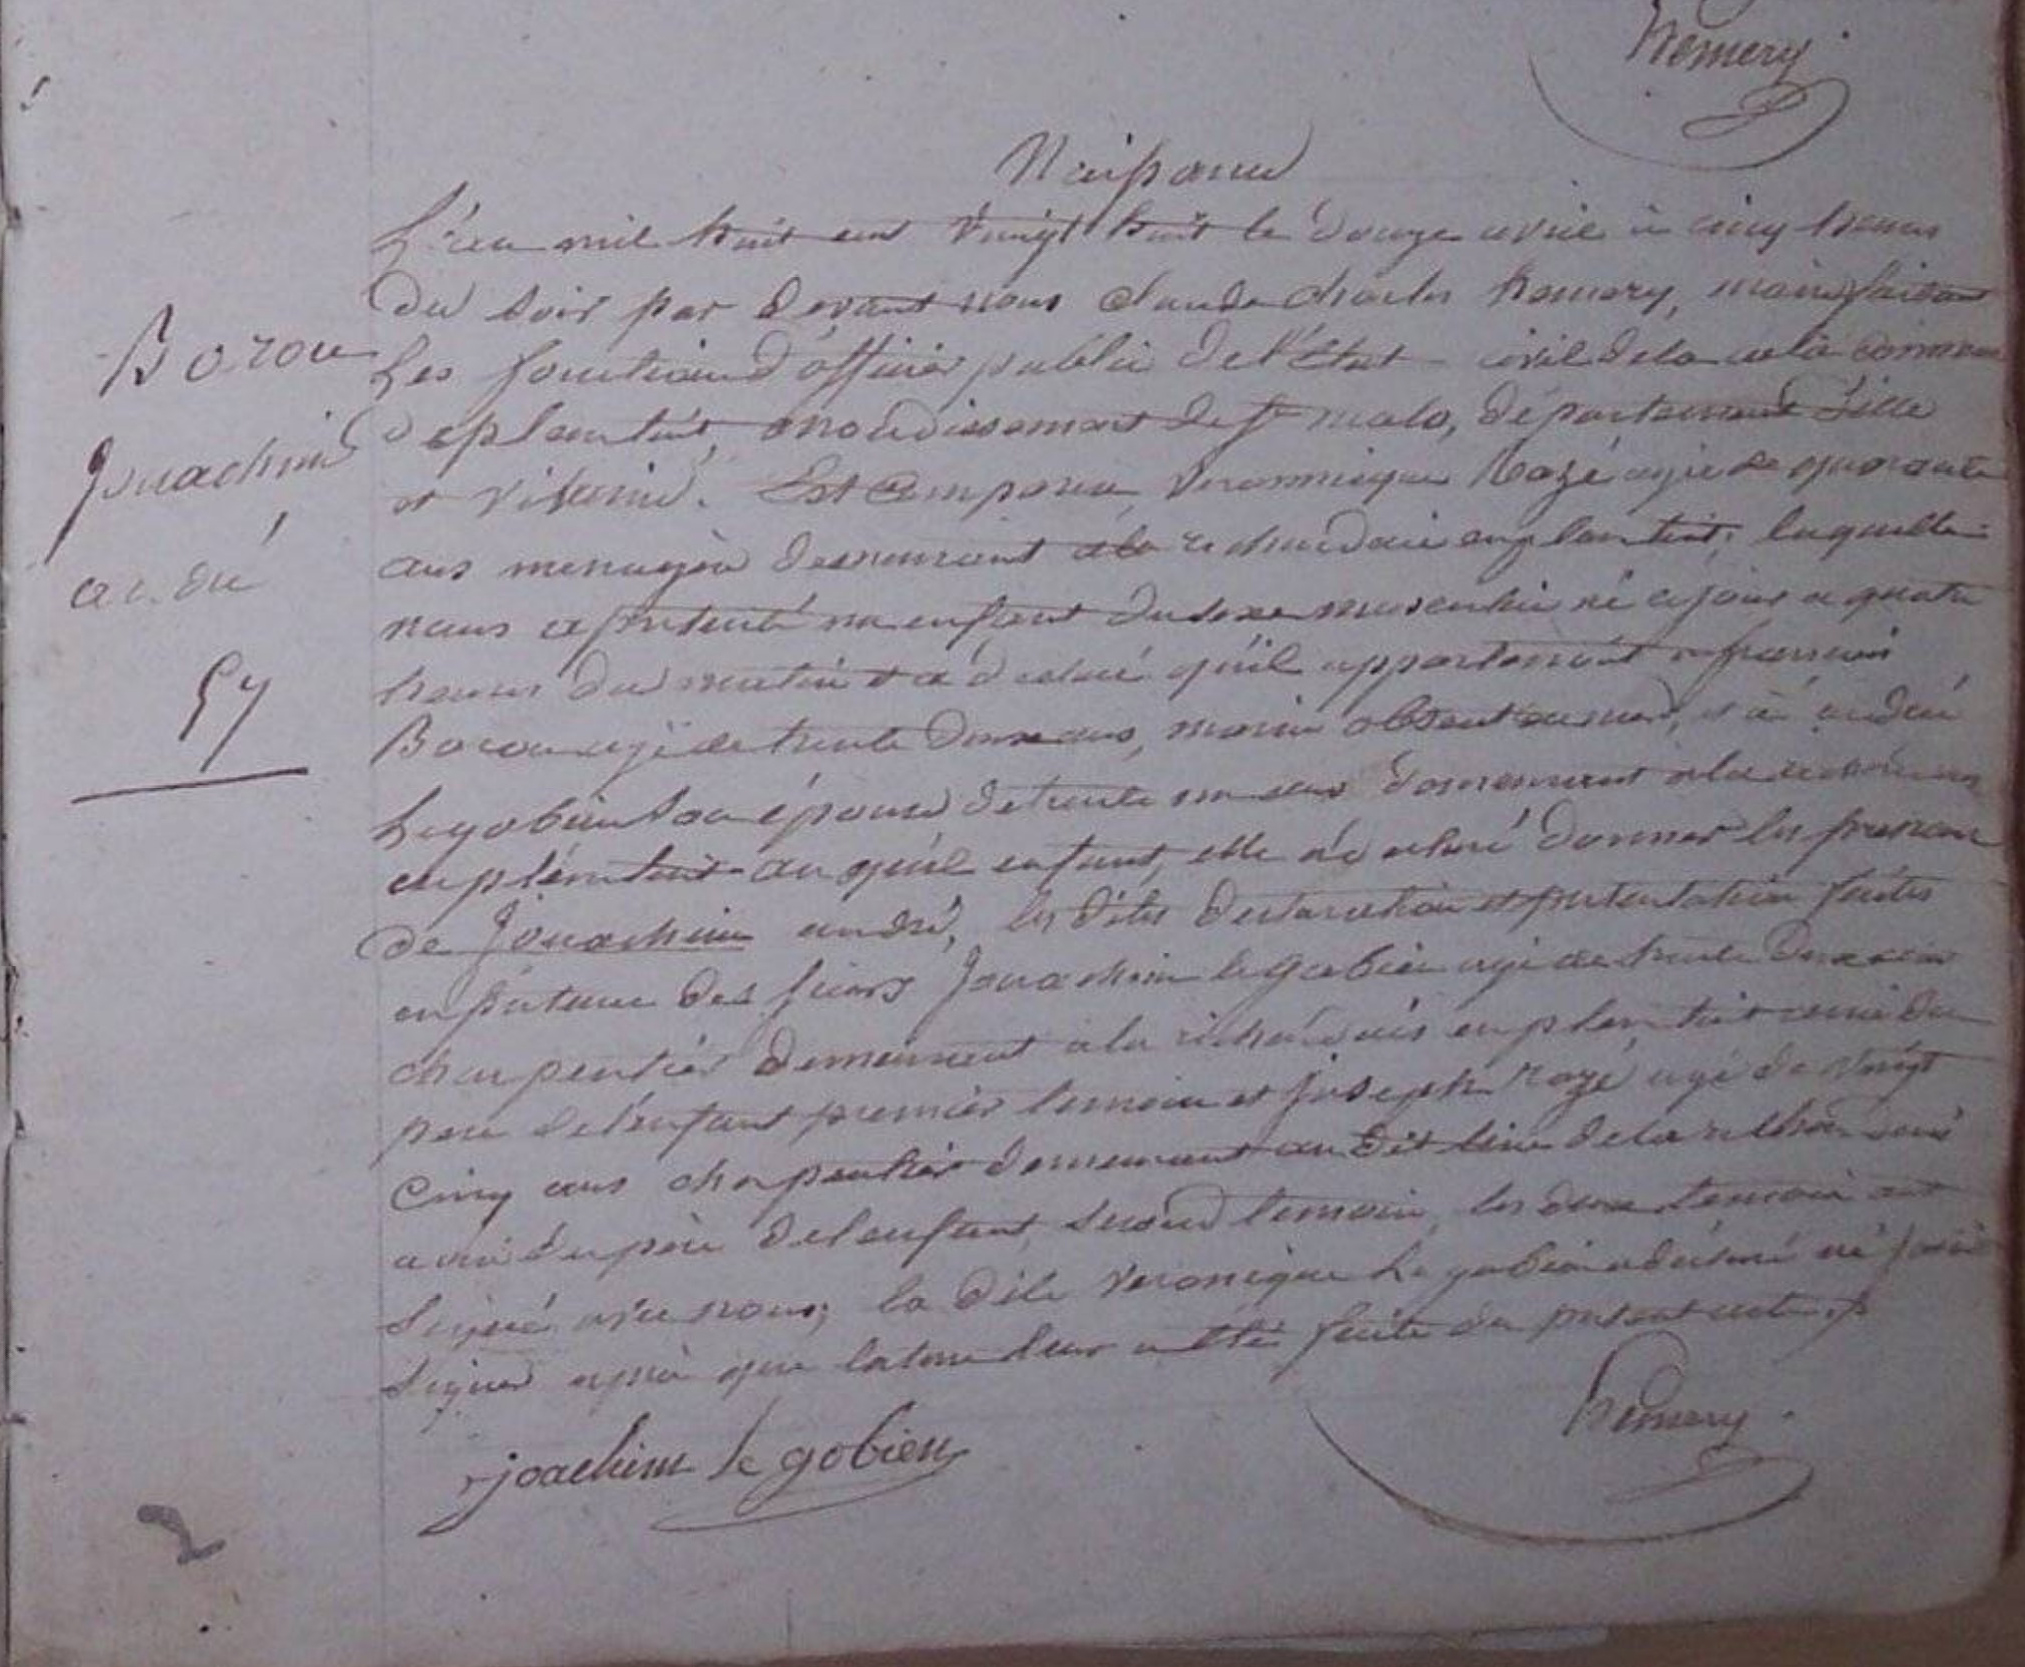 hemery
Naissance
L'an mil huit cent vingt huit le douze avril à cinq heures
du soir par devant nous claude charles hemery, maire faisant
Boron
les fonctions d'officier public de l'état civil de la commune
Jouachim
de pleurtuit, arrondissement de st malo, département d'ille
et vilaine. Est comparu veronnique Rozé agée de quarante
andré
ans menagère demeurant à la richardais en pleurtuit, laquelle
nous a présenté un enfant du sexe masculin né ce jour a quatre
57
heures du matin et a déclaré qu'il appartenoit a francois
Boron agé de trente deux ans, marin absent et à andrée
Legobien son épouse de trente un ans demeurant a la richardais
en pleurtuit au quel enfant, elle a déclaré donner les prenoms
de Jouachim andré, les dites déclaration et présentation faites
en présence des sieurs Jouachim legobien agé de trente deux ans
charpentier demeurant a la richardais en pleurtuit
père de l'enfant premier temoin et joseph rozé agé de vingt
cinq ans charpentier demeurant au dit lieu de la richardais
ami du père de l'enfant second temoin, les deux temoins ont
signé avec nous, la dite veronique Le gobien a déclaré ne savoir
signer après que lecture leur a été faite du présent acte
joachim le gobien
hemery